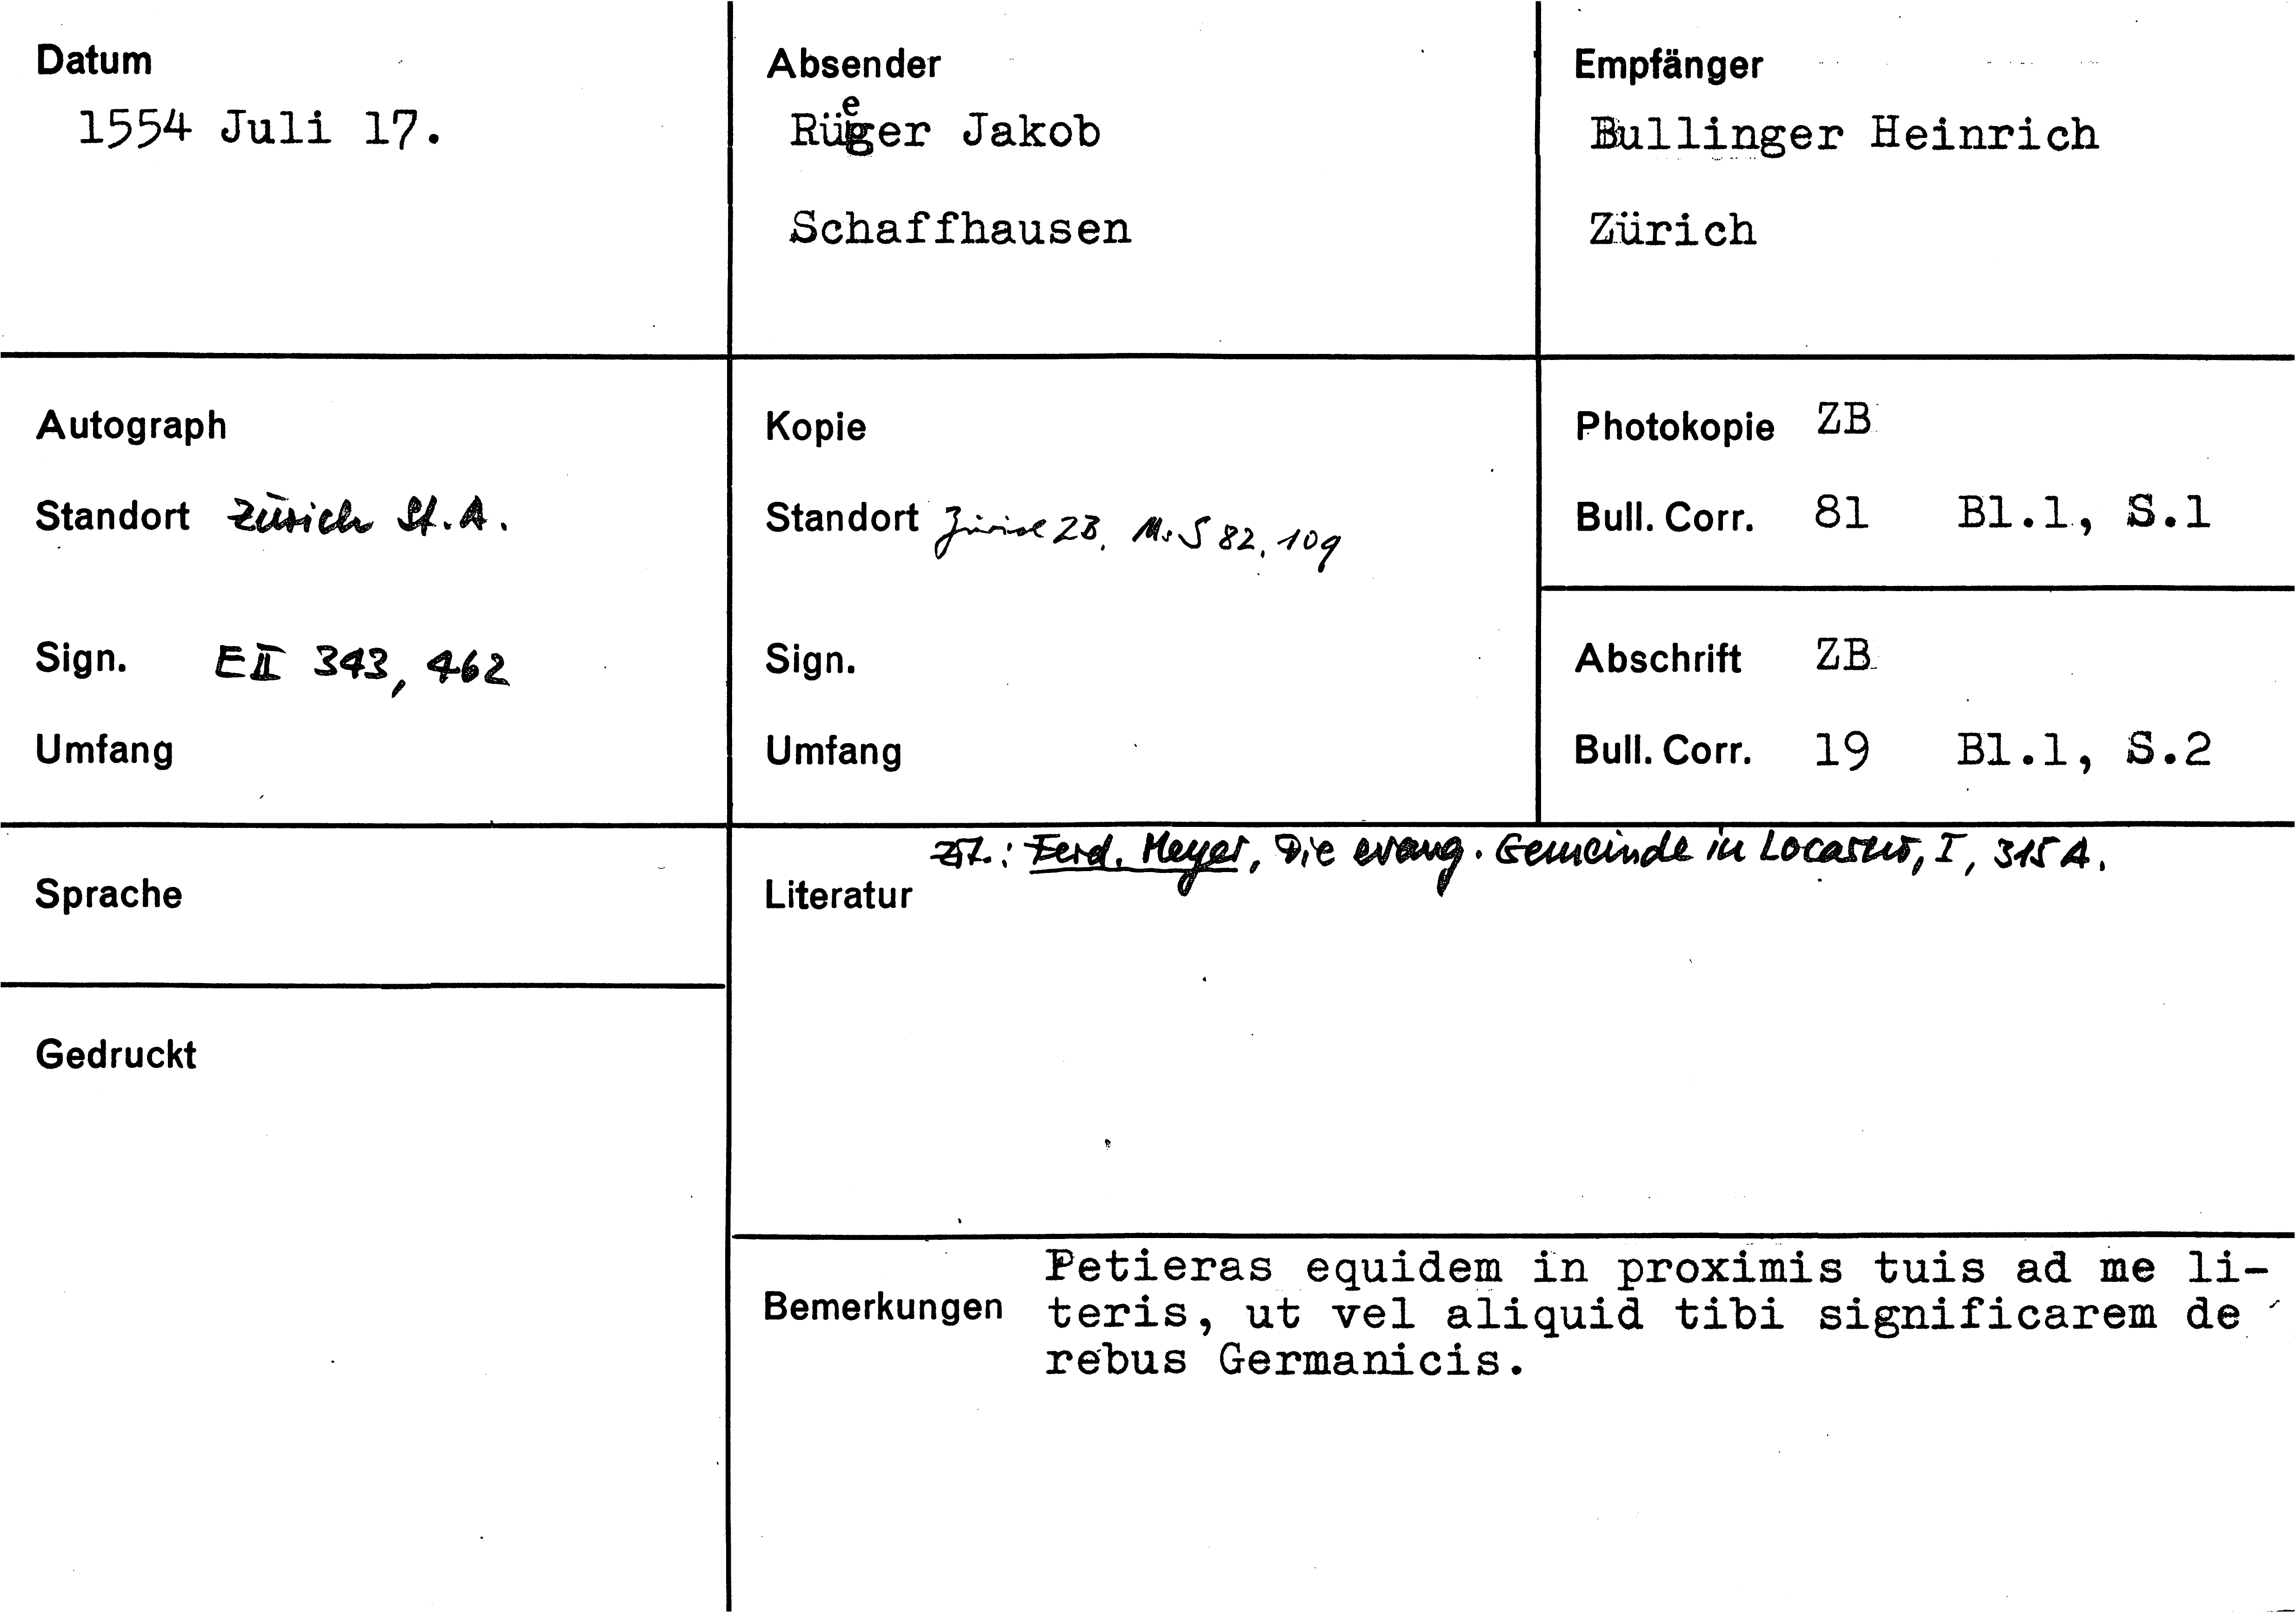 Datum
1554 Juli 17.
Absender
Rüeger Jakob
Schaffhausen
Empfänger
Bullinger Heinrich
Zürich
Autograph
Standort Zürich St.A.
Sign. EII 343, 462
Umfang
Kopie
Standort Zürich ZB, Ms S 82, 109
Sign.
Umfang
Photokopie ZB
Bull. Corr. 81 Bl.1, S.1
Abschrift ZB
Bull. Corr. 19 Bl.1, S.2
Sprache
Gedruckt
Zit.: Ferd. Meyer, Die evang. Gemeinde in Locarno, I, 315 A.
Literatur
Bemerkungen
Petieras equidem in proximis tuis ad me li-
teris, ut vel aliquid tibi significarem de
rebus Germanicis.